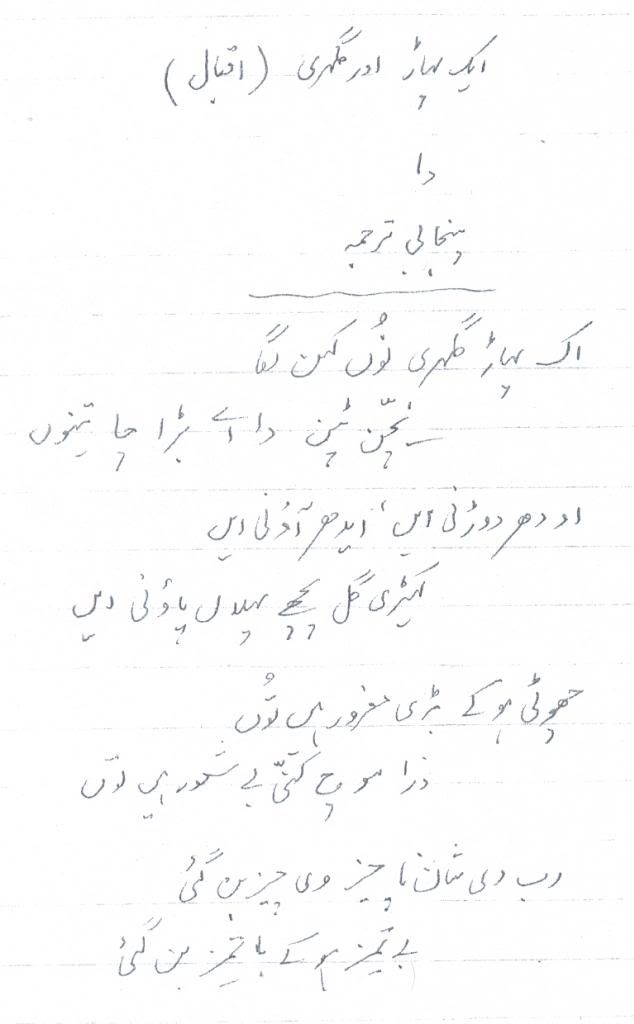 ایک پہاڑ اور گلہری (اقبال)
دا
پنجابی ترجمہ
اک پہاڑ گلہری نُوں کہن لگا
نچّن ٹپن دا اے بڑا چا تینوں
اودھر دوڑنی ایں، ایدھر آؤنی ایں
کیہڑی گل پچھے پہلاں پاؤنی ایں
چھوٹی ہو کے بڑی مغرور ایں تُوں
ذرا سوچ کتنّی بے شعور ایں توں
رب دی شان ناچیز وی چیز بن گئی
بے تمیز ہو کے باتمیز بن گئی